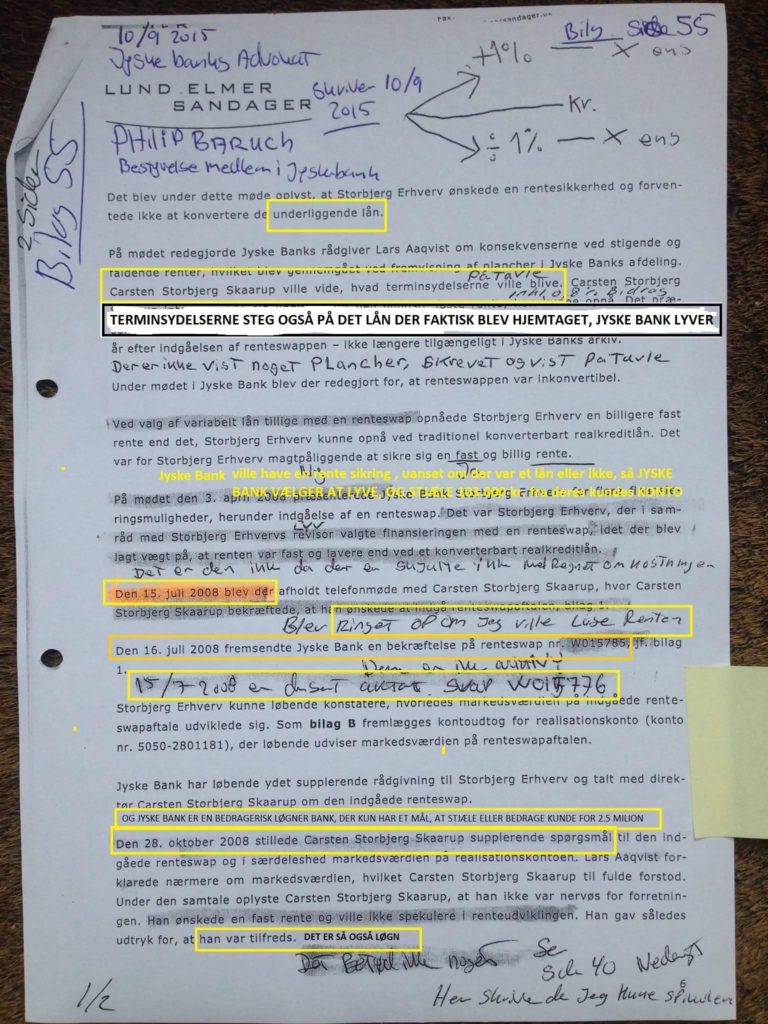 10/9 2015
Jyske banks Advokat
LUND ELMER
SANDAGER
Skriver 10/9
2015
Bilag Side 55
+1% — X ens
Kr.
÷ 1% — X ens
PHILIP BARUCH
Bestyrelse medlem i Jyskebank
2 Sider
Bilag 55
Det blev under dette møde oplyst, at Storbjerg Erhverv ønskede en rentesikkerhed og forven-
tede ikke at konvertere de underliggende lån.
På mødet redegjorde Jyske Banks rådgiver Lars Aaqvist om konsekvenserne ved stigende og
faldende renter, hvilket blev gennemgået ved fremvisning af plancher i Jyske Banks afdeling.
På tavle
Carsten Storbjerg Skaarup ville vide, hvad terminsydelserne ville blive. Carsten Storbjerg
inkl. 0,8 % Bidrag
TERMINSYDELSERNE STEG OGSÅ PÅ DET LÅN DER FAKTISK BLEV HJEMTAGET, JYSKE BANK LYVER
år efter indgåelsen af renteswappen – ikke længere tilgængeligt i Jyske Banks arkiv.
Der er ikke vist noget Plancher, skrevet og vist på tavle
Under mødet i Jyske Bank blev der redegjort for, at renteswappen var inkonvertibel.
Ved valg af variabelt lån tillige med en renteswap opnåede Storbjerg Erhverv en billigere fast
rente end det, Storbjerg Erhverv kunne opnå ved traditionel konverterbart realkreditlån. Det
var for Storbjerg Erhverv magtpåliggende at sikre sig en fast og billig rente.
Jyske Bank ville have en rente sikring , uanset om der var et lån eller ikke, så JYSKE
BANK VÆLGER AT LYVE, OG STJÆLE
kr fra deres kundes KONTO
På mødet den 3. april 2008 præsenterede Jyske Bank Storbjerg Erhverv for
ringsmuligheder, herunder indgåelse af en renteswap. Det var Storbjerg Erhverv, der i sam-
råd med Storbjerg Erhvervs revisor valgte finansieringen med en renteswap, idet der blev
lagt vægt på, at renten var fast og lavere end ved et konverterbart realkreditlån.
Det er den ikke da der en skjulte ikke med Regnet omkostningen
Den 15. juli 2008 blev der afholdt telefonmøde med Carsten Storbjerg Skaarup, hvor Carsten
Storbjerg Skaarup bekræftede, at han ønskede at indgå renteswapaftalen, bilag 1.
Blev Ringet op om Jeg ville Låse Renten
Den 16. juli 2008 fremsendte Jyske Bank en bekræftelse på renteswap nr. W015785, jf. bilag
1.
Den er ikke
15/7-2008 er
swap W015776.
Storbjerg Erhverv kunne løbende konstatere, hvorledes markedsværdien på indgåede rente-
swapaftale udviklede sig. Som bilag B fremlægges kontoudtog for realisationskonto (konto
nr. 5050-2801181), der løbende udviser markedsværdien på renteswapaftalen.
Jyske Bank har løbende ydet supplerende rådgivning til Storbjerg Erhverv og talt med direk-
tør Carsten Storbjerg Skaarup om den indgåede renteswap.
OG JYSKE BANK ER EN BEDRAGERISK LØGNER BANK, DER KUN HAR ET MÅL, AT STJÆLE ELLER BEDRAGE KUNDE FOR 2.5 MILION
Den 28. oktober 2008 stillede Carsten Storbjerg Skaarup supplerende spørgsmål til den ind-
gåede renteswap og i særdeleshed markedsværdien på realisationskontoen. Lars Aaqvist for-
klarede nærmere om markedsværdien, hvilket Carsten Storbjerg Skaarup til fulde forstod.
Under den samtale oplyste Carsten Storbjerg Skaarup, at han ikke var nervøs for forretnin-
gen. Han ønskede en fast rente og ville ikke spekulere i renteudviklingen. Han gav således
udtryk for, at han var tilfreds. DET ER SÅ OGSÅ LØGN
Det Betød ikke noget
Se
Side 40 Nederst
Her skriver de Jeg kunne
1/2